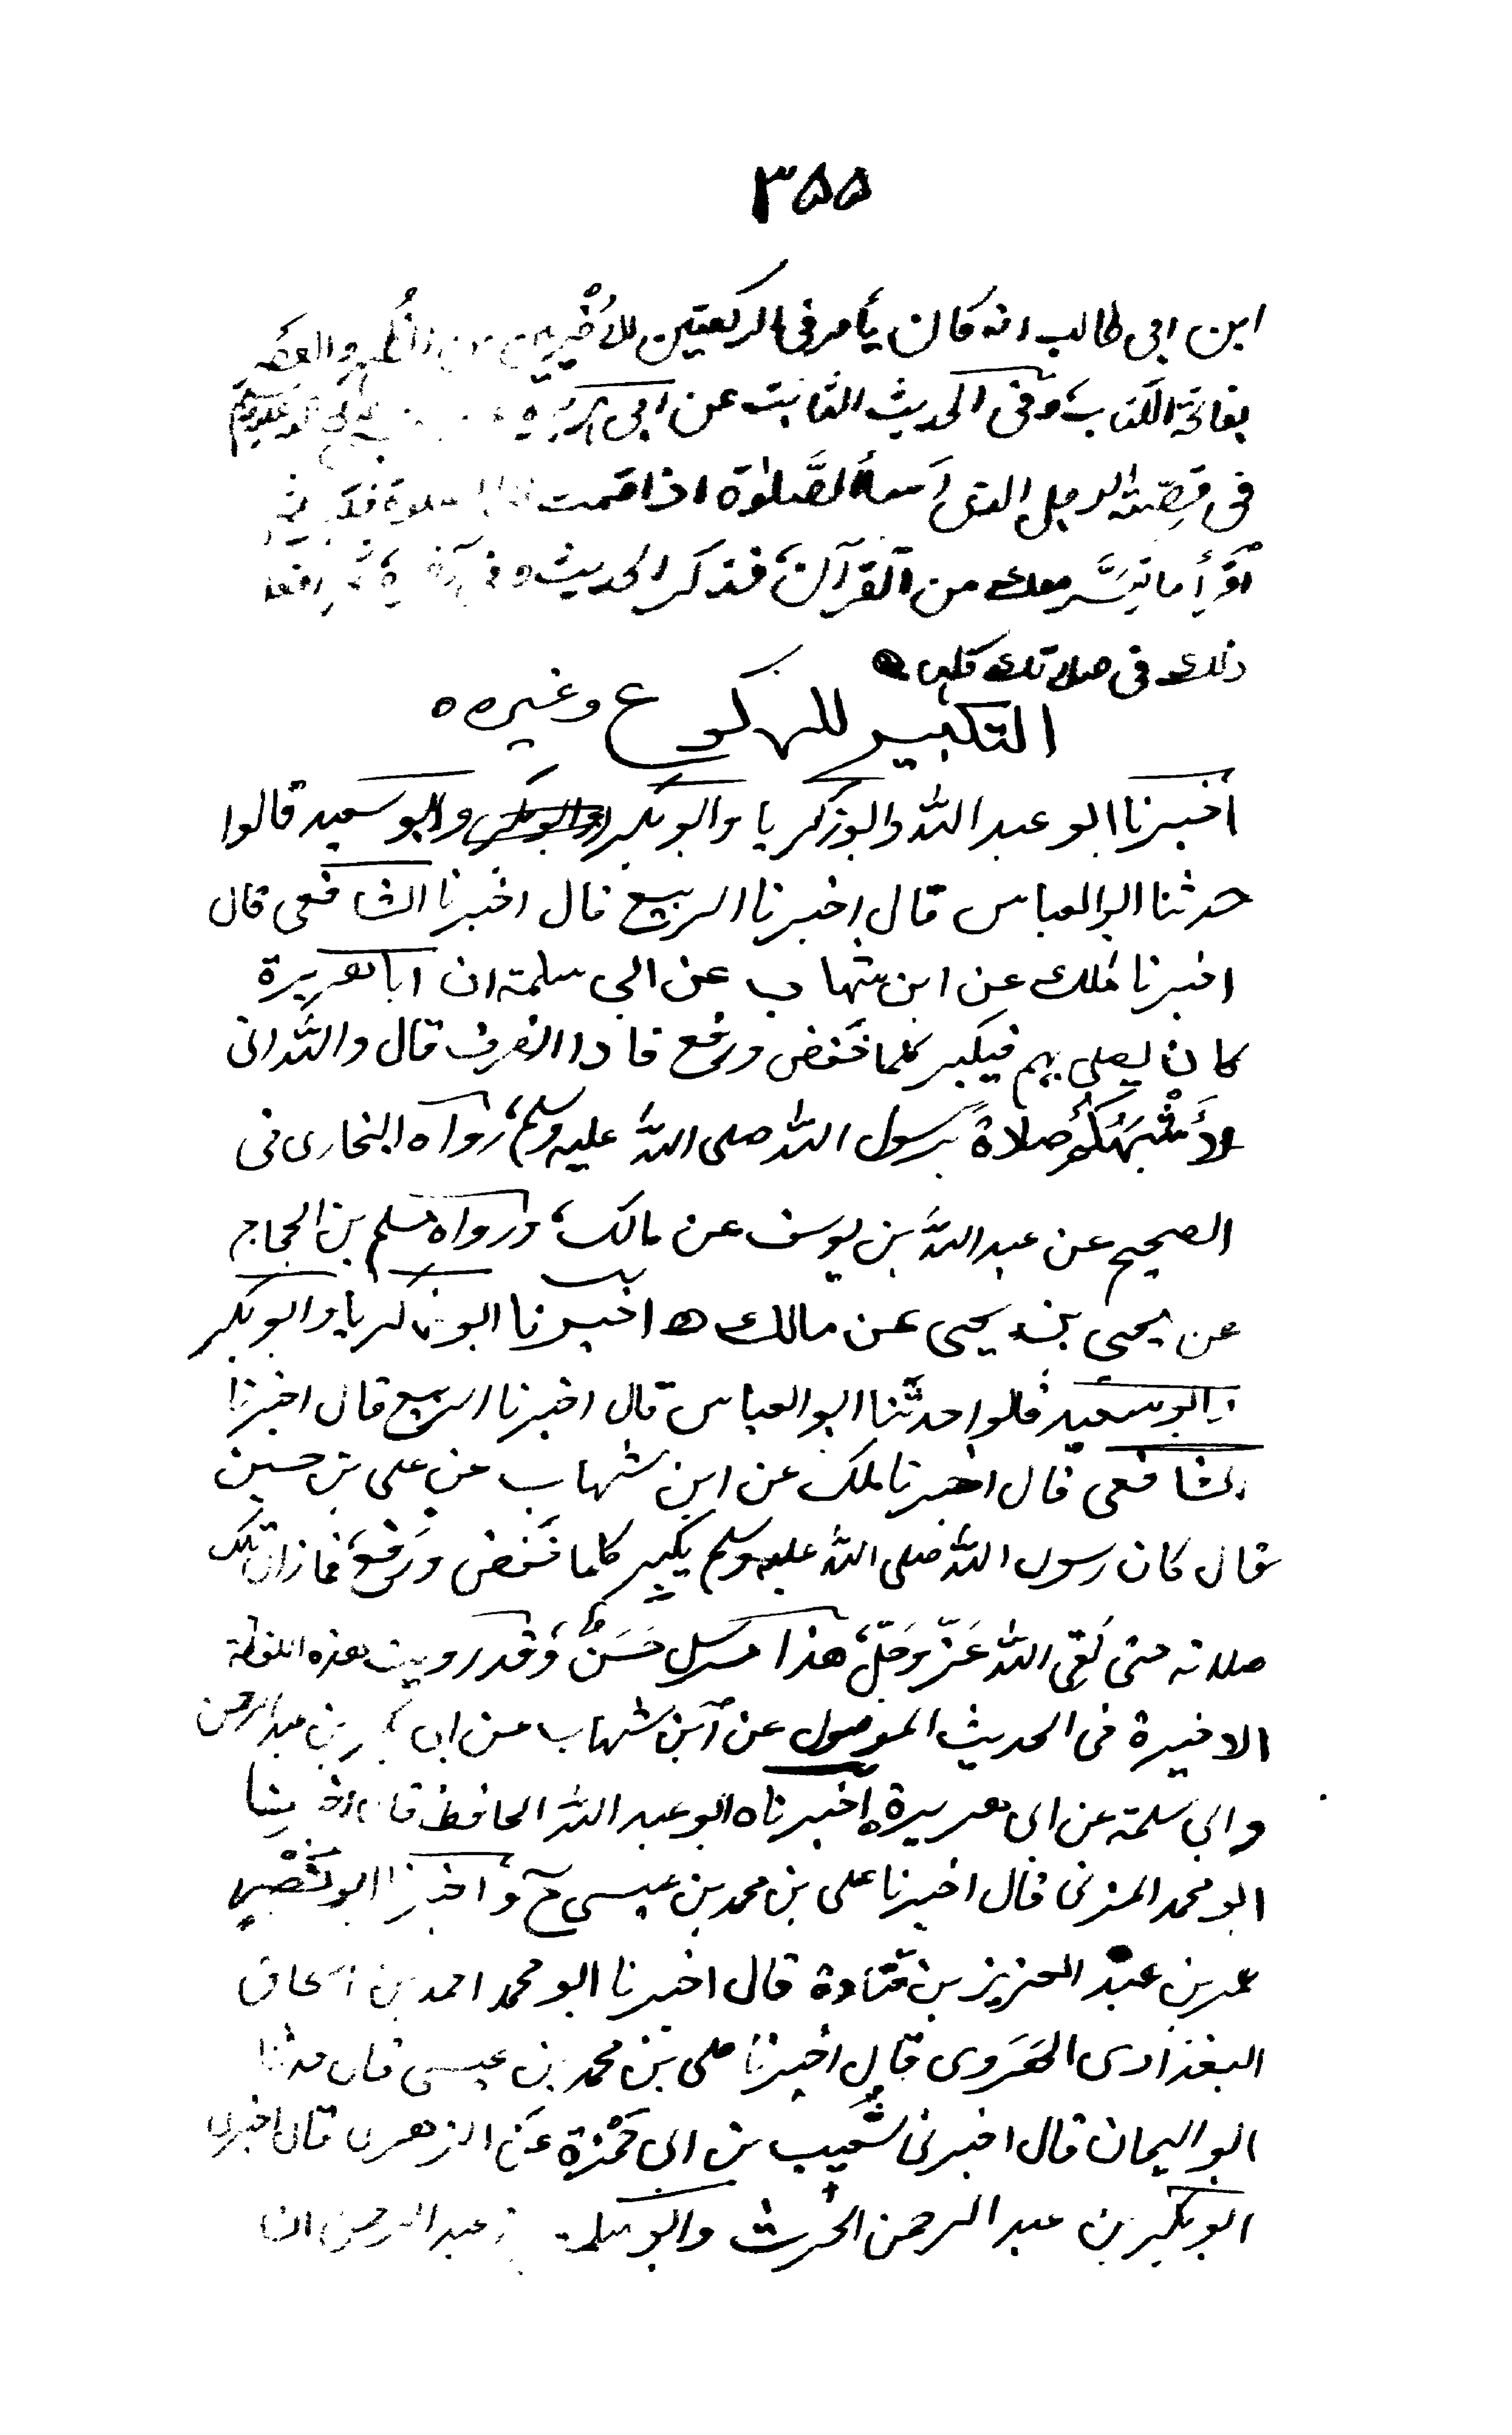 ٣٥٥
ابن ابى طالب انه كان يأمر فى الركعتين الأُخْريين من الظهر والعصر
بفاتحة الكتاب، وفى الحديث الثابت عن ابى هريرة
فى قصة الرجل الذى اساء الصَّلوٰة اذا قمت الى الصلوة فكبر ثم
اقرأ ما تيسَّر معك من القرآن، فذكر الحديث وفى آخره، ثم افعل
ذلك فى صلاتك كلها
التكبير للركوع وغيره ه
اخبرنا ابو عبد الله وابو زكريا وابو بكر وابو سعيد قالوا
حدثنا ابو العباس قال اخبرنا الربيع قال اخبرنا الشافعى قال
اخبرنا مٰلك عن ابن شهاب عن ابى سلمة ان ابا هريرة
كان يصلى بهم فيكبر كلما خَفض ورفع فاذا انصرف قال والله انى
لأَشْبَهُكُمْ صلاةً برسول الله صلى الله عليه وسلم، رواه البخارى فى
الصحيح عن عبد الله بن يوسف عن مالك، ورواه مسلم بن الحجاج
عن يحيى بن يحيى عن مالك ه اخبرنا ابو زكريا وابو بكر
وابو سعيد قالوا حدثنا ابو العباس قال اخبرنا الربيع قال اخبرنا
الشافعى قال اخبرنا ملك عن ابن شهاب عن على بن حسين
قال كان رسول الله صلى الله عليه وسلم يكبر كلما خَفض ورَفع، فما زالت تلك
صلاته حتى لقى الله عَزَّ وَجَلَّ، هذا مرسل حَسَنٌ، وقد رويت هذه اللفظة
الاخيرة فى الحديث الموصول عن ابن شهاب عن ابى بكر بن عبد الرحمن
وابى سلمة عن ابى هريرة ه اخبرناه ابو عبد الله الحافظ قال اخبرنا
ابو محمد المزنى قال اخبرنا على بن محمد بن عيسى ح وَاخبرنا ابو نَصْر
عمر بن عبد العزيز بن قتادة قال اخبرنا ابو محمد احمد بن اسحاق
البغدادى الهَرَوى قال اخبرنا على بن محمد بن عيسى قال حدثنا
ابو اليمان قال اخبرنى شُعَيب بن ابى حَمْزة عَن الزهرى قال اخبرنى
ابو بكر بن عبد الرحمن الحٰرث وابو سلمة بن عبد الرحمن ان